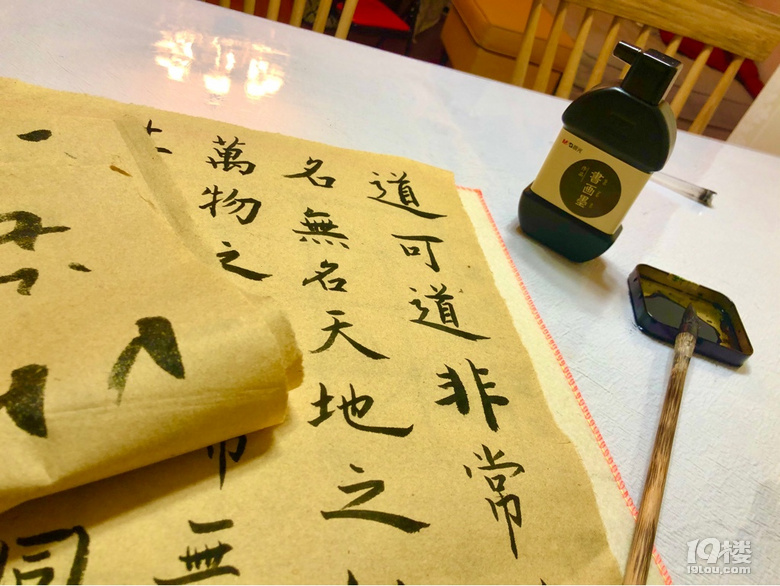 道可道非常
名無名天地之
萬物之
無
同
M&G 晨光
書画墨
19楼
19lou.com